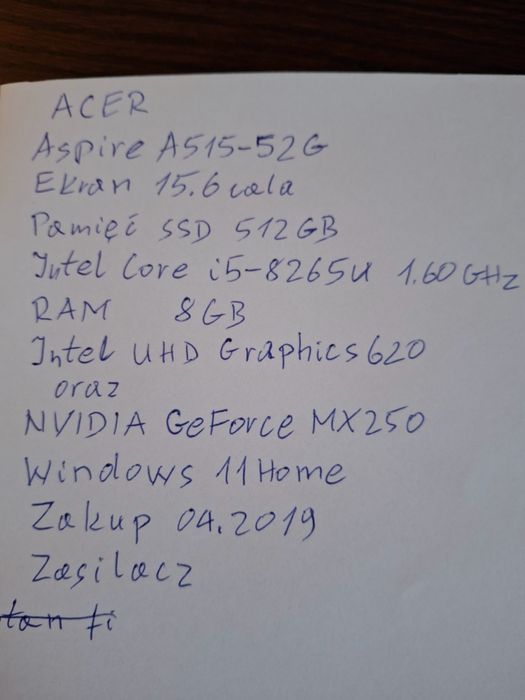 ACER
Aspire A515-52G
Ekran 15.6 cala
Pamięć SSD 512GB
Intel Core i5-8265U 1.60GHz
RAM 8GB
Intel UHD Graphics 620
oraz
NVIDIA GeForce MX250
Windows 11 Home
Zakup 04.2019
Zasilacz
tan fi